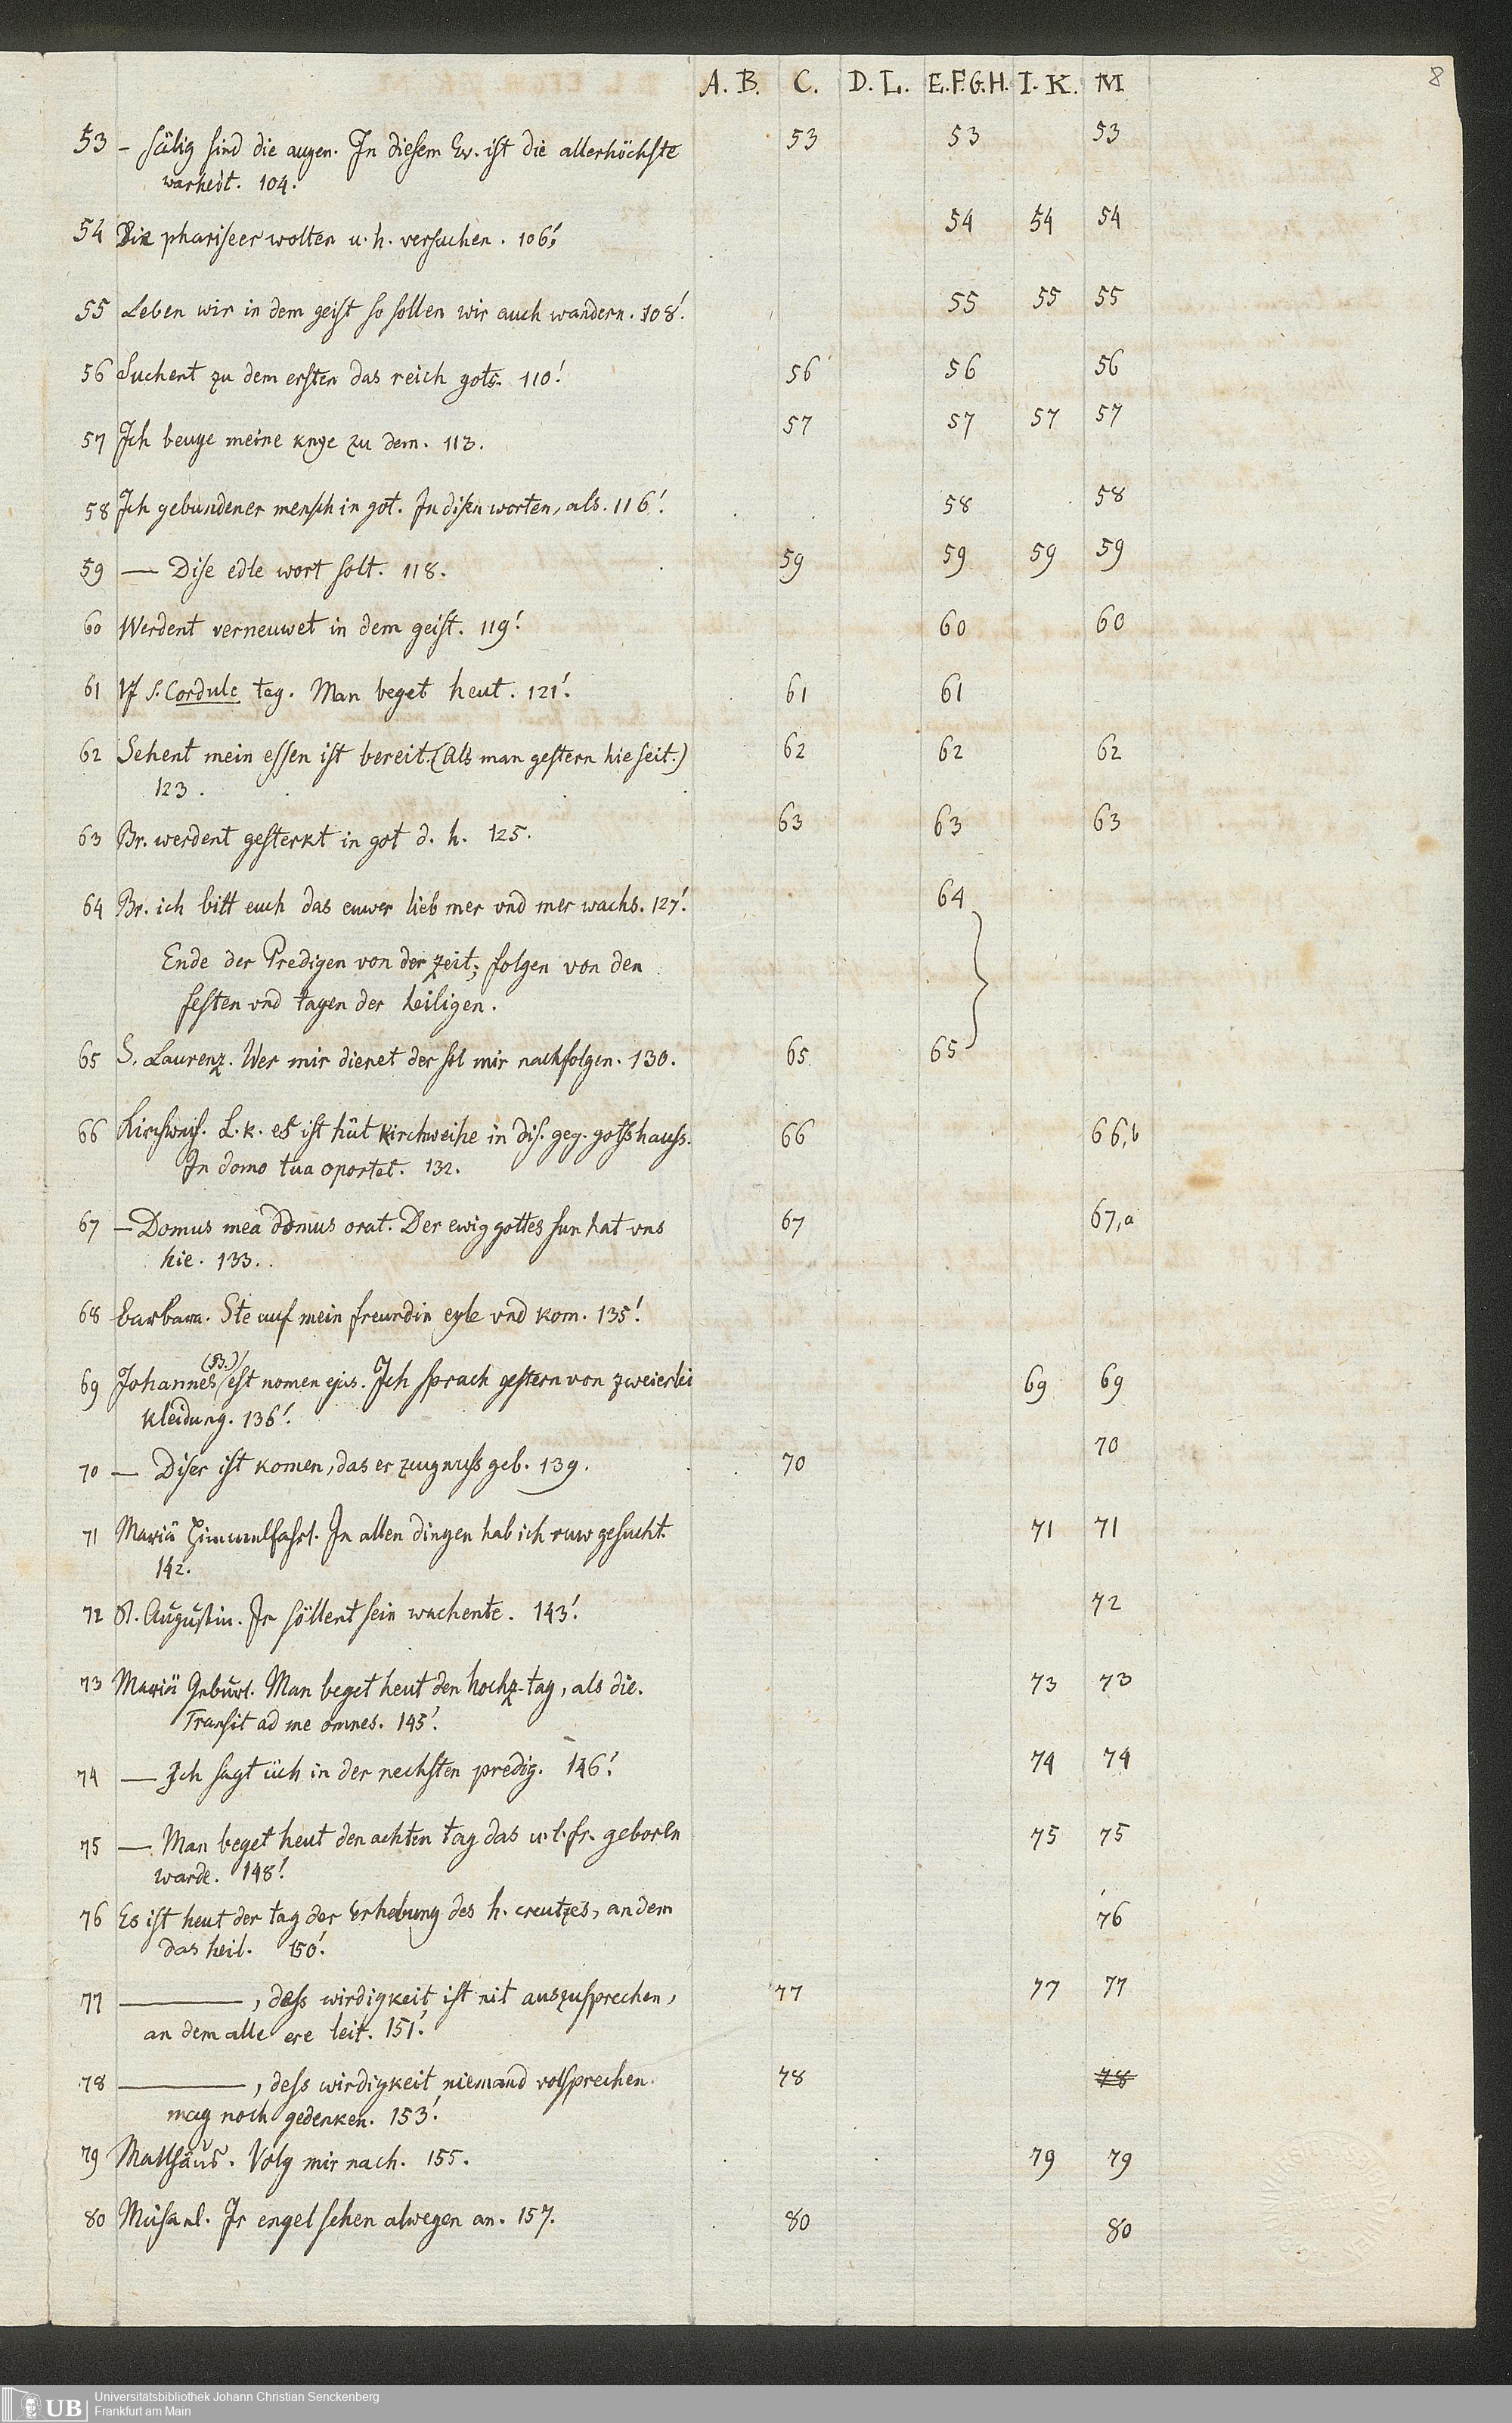 A. B. C. D. L. E.F.G.H. I. K. M 8
53 – sälig sind die augen. In diesem Ev. ist die allerhöchste 53 53 53
warheit. 104.
54 Die phariseer wolten u. h. versuchen. 106! 54 54 54
55 Leben wir in dem geist so sollen wir auch wandern. 108! 55 55 55
56 Suchent zu dem ersten das reich gots. 110! 56 56 56
57 Ich beuge meine knye zu dem. 113. 57 57 57 57
58 Ich gebundener mensch in got. In disen worten, als. 116! 58 58
59 — Dise edle wort solt. 118. 59 59 59 59
60 Werdent verneuwet in dem geist. 119! 60 60
61 Vf S. Cordule tag. Man beget heut. 121! 61 61
62 Sehent mein essen ist bereit. (Als man gestern hie seit.) 62 62 62
123.
63 Br. werdent gesterkt in got d. h. 125. 63 63 63
64 Br. ich bitt euch das euwer lieb mer vnd mer wachs. 127! 64
Ende der Predigen von der zeit; folgen von den
festen vnd tagen der heiligen.
65 S. Laurenz. Wer mir dienet der sol mir nachfolgen. 130. 65 65
66 Kirchweih. L. k. es ist hüt Kirchweihe in dis. geg. gotshauss. 66 66,b
In domo tua oportet. 132.
67 — Domus mea domus orat. Der ewig gottes sun hat vns 67 67,a
hie. 133.
68 Barbara. Ste auf mein freundin eyle vnd kom. 135!
69 Johannes (B.) est nomen ejus. Ich sprach gestern von zweierlei 69 69
kleidung. 136!
70 — Diser ist komen, das er zeugnuss geb. 139. 70 70
71 Mariä Himmelfahrt. In allen dingen hab ich ruw gesucht. 71 71
142.
72 St. Augustin. Ir söllent sein wachente. 143! 72
73 Mariä Geburt. Man beget heut den hochz. tag, als die. 73 73
Transit ad me omnes. 145!
74 — Ich sagt üch in der nechsten predig. 146! 74 74
75 — Man beget heut den achten tag das u. l. fr. geboren 75 75
warde. 148!
76 Es ist heut der tag der Erhebung des h. creutzes, an dem 76
das heil. 150!
77 ———, dess wirdigkeit ist nit auszusprechen, 77 77 77
an dem alle ere leit. 151!
78 ———, dess wirdigkeit niemand volsprechen 78 78
mag noch gedenken. 153!
79 Matthäus. Volg mir nach. 155. 79 79
80 Michael. Ir engel sehen alwegen an. 157. 80 80
UB Universitätsbibliothek Johann Christian Senckenberg
Frankfurt am Main